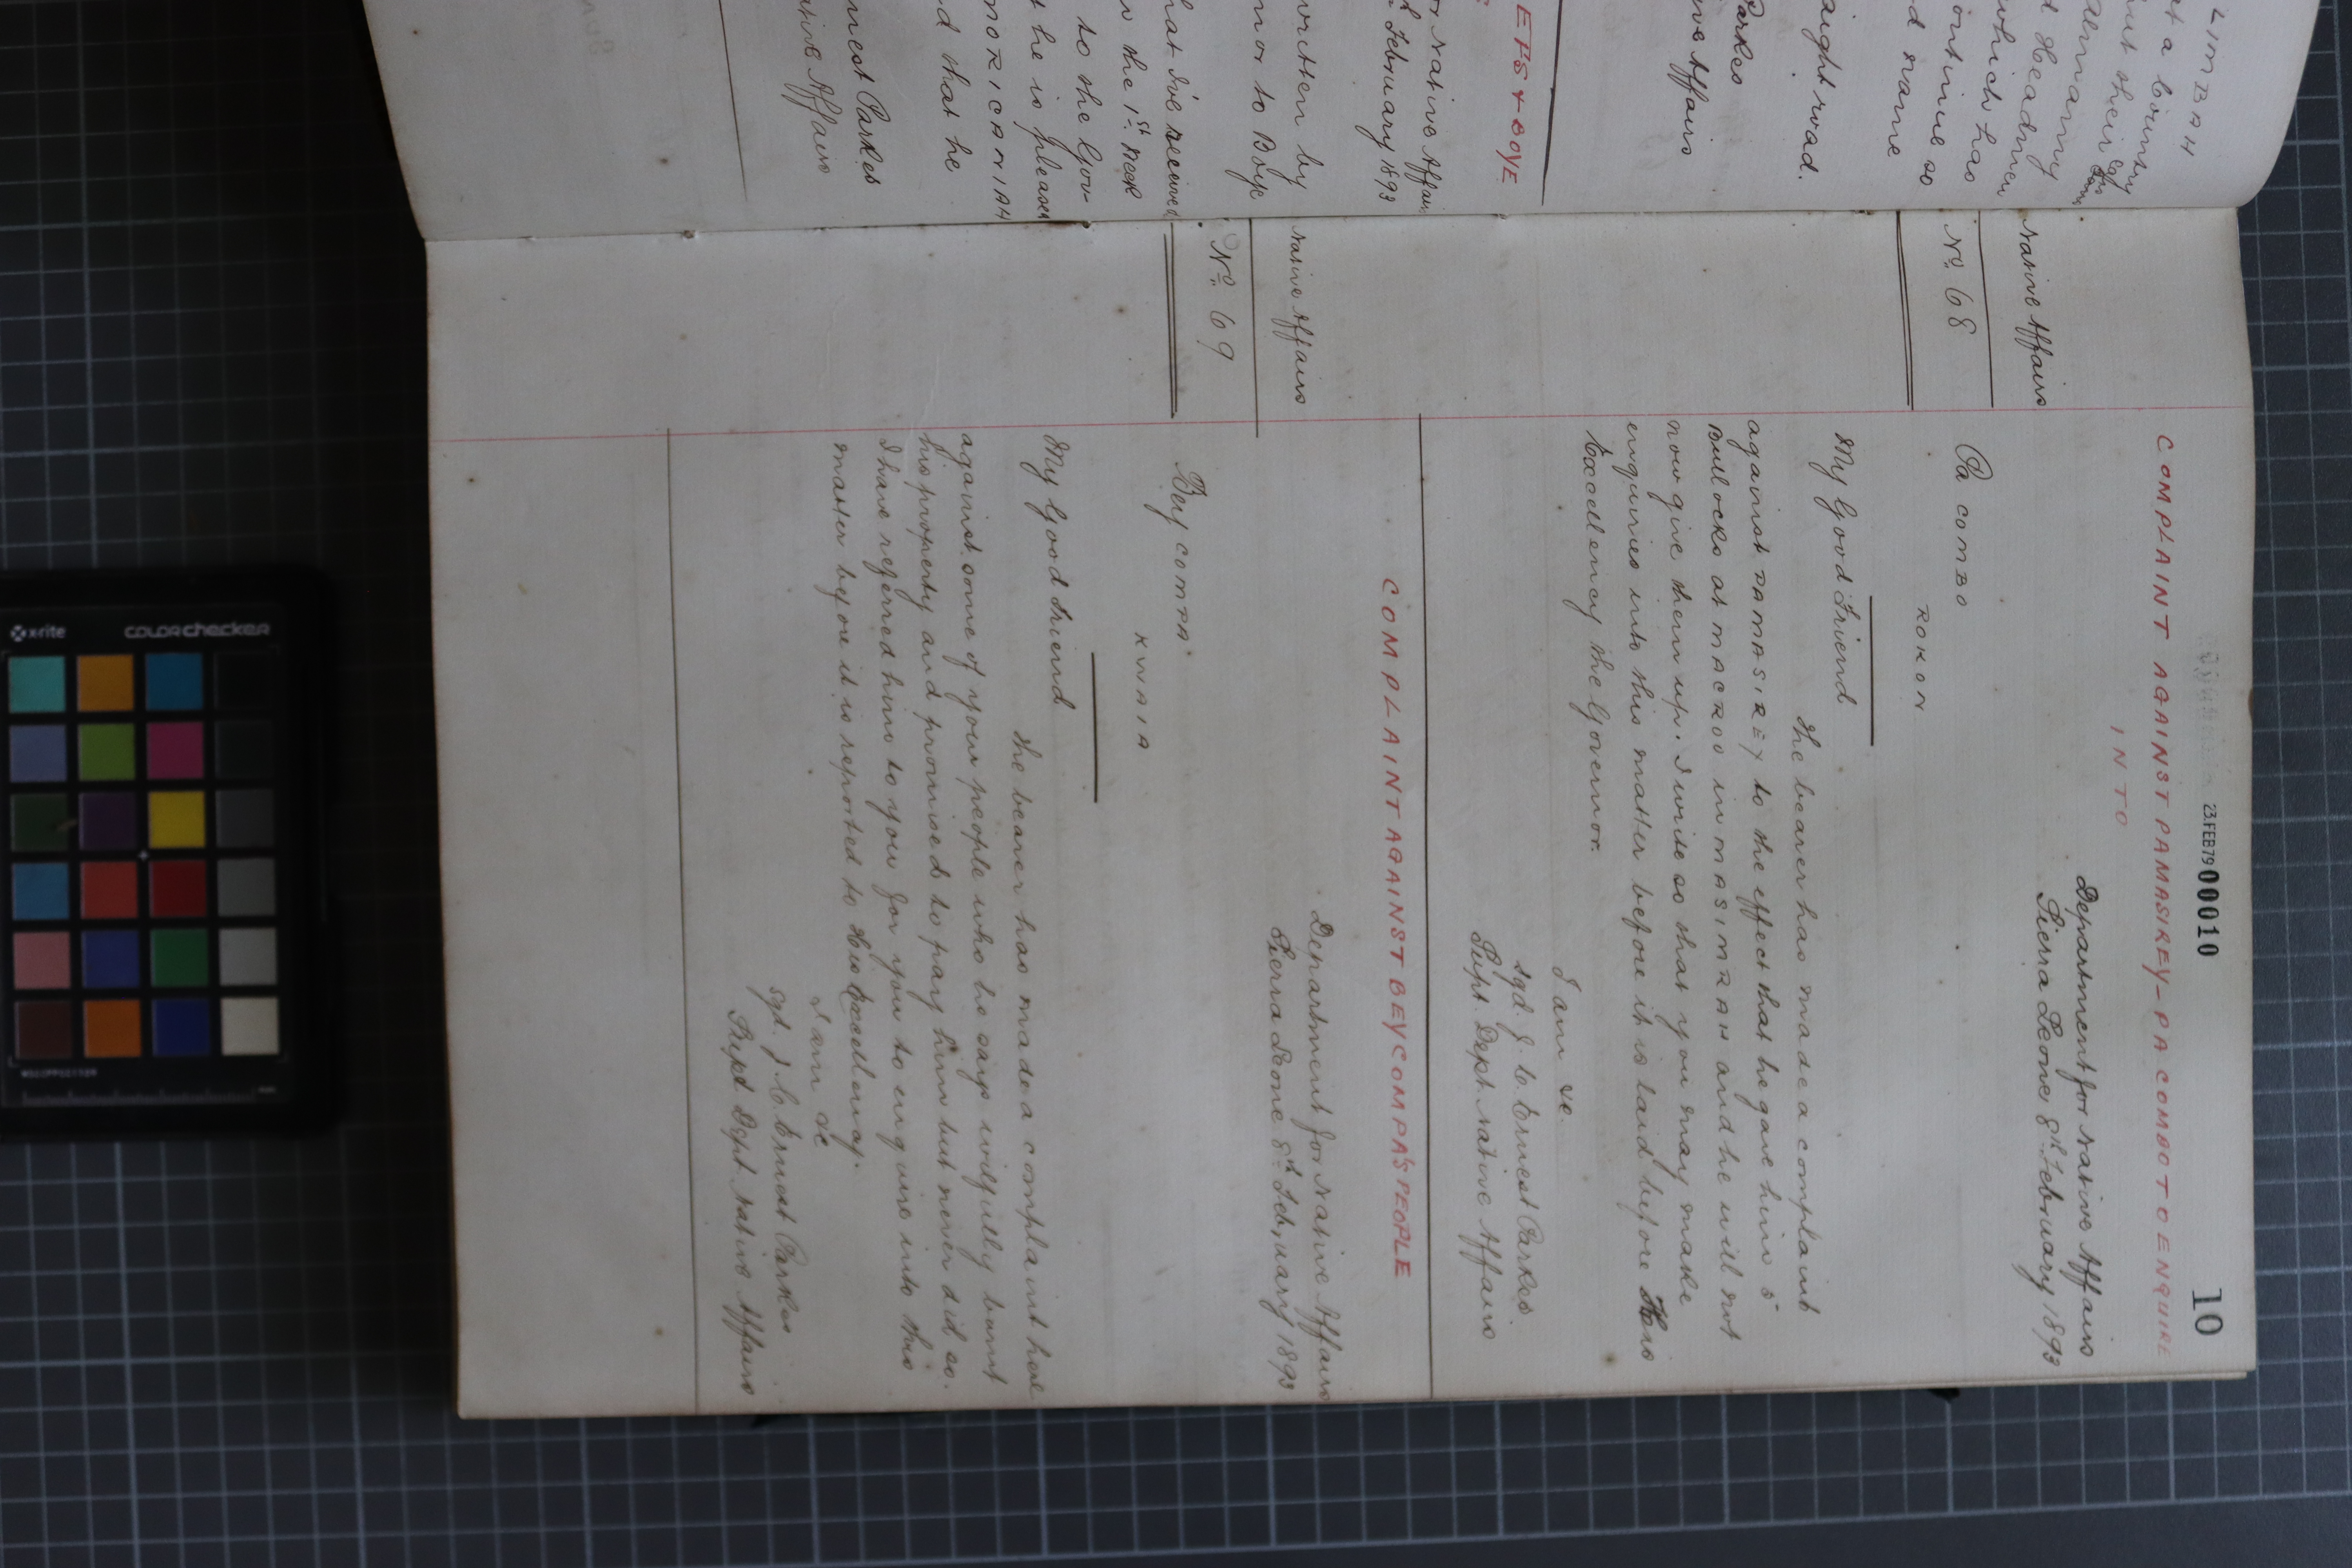 23.FEB79 00010
10
COMPLAINT AGAINST PAMASIREY-PA COMBO TO ENQUIRE
INTO
Department for Native Affairs
Sierra Leone, 8th February 1893
Native Affairs
No. 68
Pa COMBO
ROKON
My Good Friend
The bearer has made a complaint
against PAMASIREY to the effect that he gave him 5
Bullocks at MACROO in MASIMRAH and he will not
now give them up. I write so that you may make
enquiries into this matter before it is laid before His
Excellency the Governor.
I am &c.
sgd. J. C. Ernest Parkes.
Supt. Dept. Native Affairs
COMPLAINT AGAINST BEY COMPA'S PEOPLE
Department for Native Affairs
Sierra Leone 8th February 1893
Native Affairs
No. 69
Bey COMPA
KWAIA
My Good Friend
The bearer has made a complaint here
against some of your people who he says wilfully burnt
his property and promised to pay him but never did so.
I have referred him to you for you to enquire into this
matter before it is reported to His Excellency.
I am &c
sgd. J. C. Ernest Parkes
Supt Dept. Native Affairs
LIMBAH
at a
but their
Headmen
which has
continue so
name
aight road.
Parkes
ive Affairs
EFS & BOYE
or Native Affairs
February 1893
written by
nor to Boye
hat I've received
the 1st. Nook
to the Gov-
he is pleased
d that he
nest Parkes
ative Affairs
xrite colorchecker